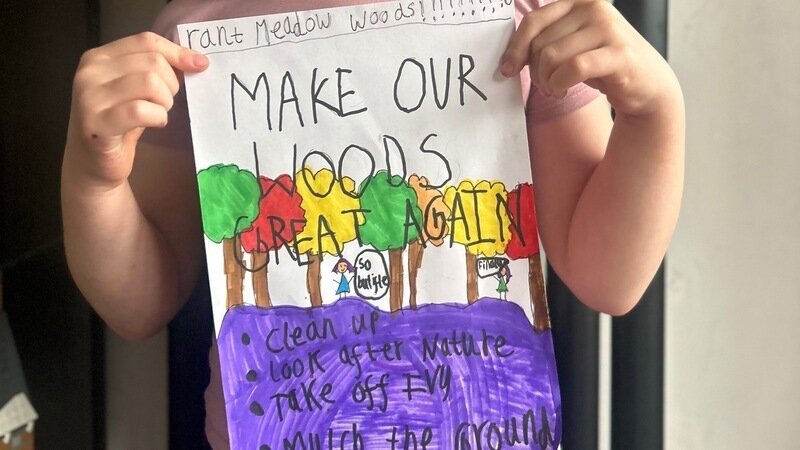 rant Meadow Woods!!!!!!!!!
MAKE OUR
WOODS
GREAT AGAIN
So
• Clean up
• Look after Nature
• Take off IVY
• Mulch the Ground